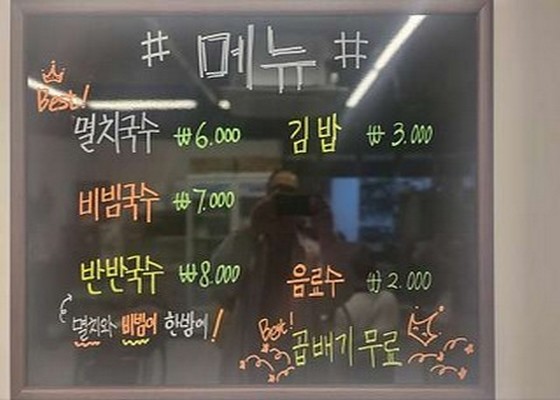 # 메뉴 #
Best!
멸치국수 ₩6.000 김밥 ₩3.000
비빔국수 ₩7.000
반반국수 ₩8.000 음료수 ₩2.000
멸치와 비빔이 한방에!
Best!
곱배기 무료